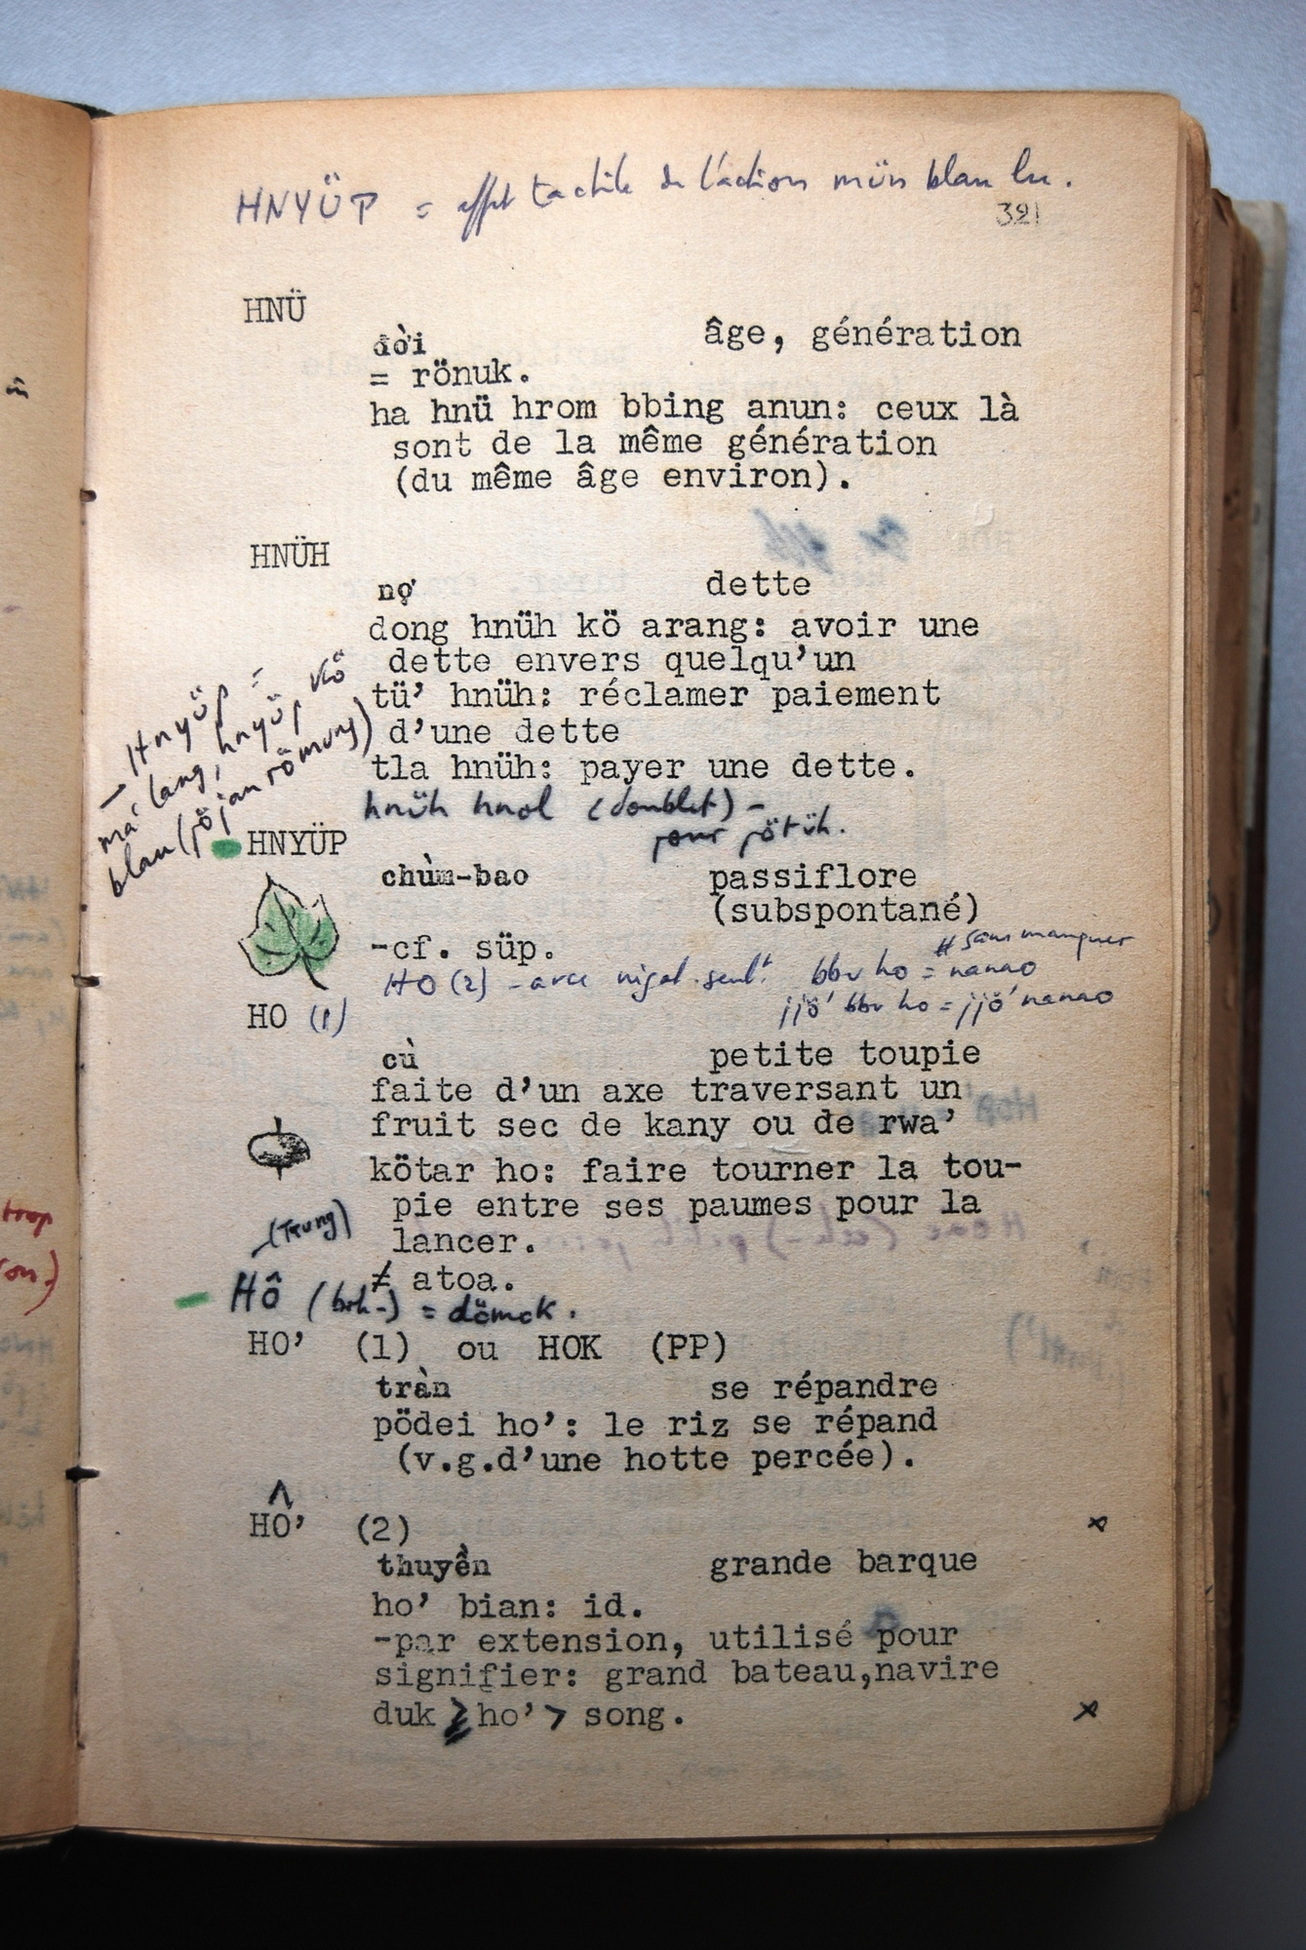 HNYÜP = effet tactile de l'action mün blau lu.
321
HNÜ
đời âge, génération
= rönuk.
ha hnü hrom bbing anun: ceux là
sont de la même génération
(du même âge environ).
HNÜH
nợ dette
dong hnüh kö arang: avoir une
dette envers quelqu'un
tü' hnüh: réclamer paiement
d'une dette
tla hnüh: payer une dette.
hnüh hnol (doublet) -
pour pötüh.
- Hnyüp =
má lang, hnyüp kö
blau (pöjan römung)
HNYÜP
chùm-bao passiflore
(subspontané)
-cf. süp.
HO (2) - avec négat. seult. bbu ho = nanao
# sans manquer
jjö' bbu ho = jjö' nanao
HO (1)
cù petite toupie
faite d'un axe traversant un
fruit sec de kany ou de rwa'
kötar ho: faire tourner la tou-
pie entre ses paumes pour la
lancer.
(Trung)
≠ atoa.
- HÔ (boh-) = dömok.
HO' (1) ou HOK (PP)
tràn se répandre
pödei ho': le riz se répand
(v.g.d'une hotte percée).
HÔ' (2) x
thuyền grande barque
ho' bian: id.
-par extension, utilisé pour
signifier: grand bateau,navire
duk > ho' > song. x